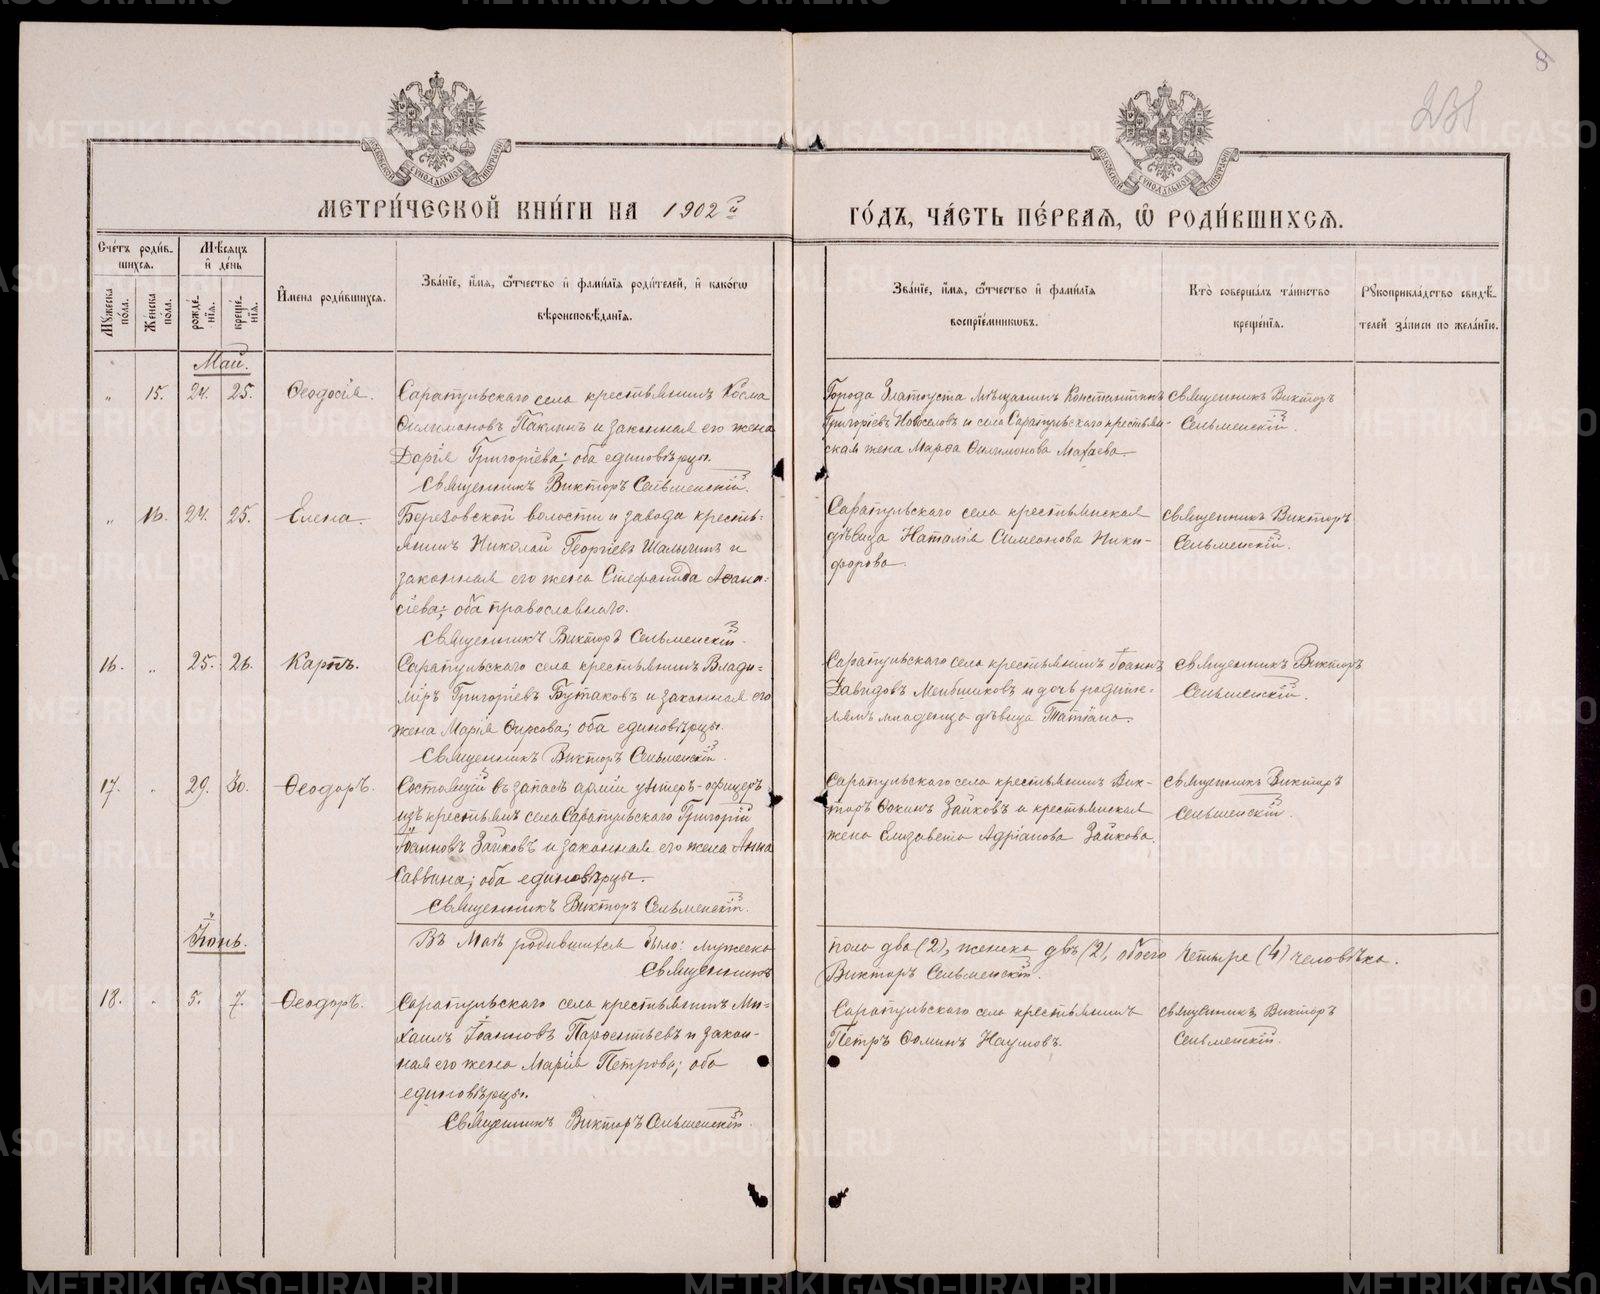 8
231
МЕТРИ́ЧЕСКОЙ КНИ́ГИ НА 1902й
ГО́ДЪ, ЧА́СТЬ ПЕ́РВАЯ, Ѽ РОДИ́ВШИХСЯ.
Сче́тъ роди́в-
шихся.
Мѣсяцъ
и҆ де́нь
Мꙋжеска по́ла.
Же́нска по́ла.
рожде́-
нїѧ.
креще́-
нїѧ.
И҆мена роди́вшихся.
Зва́нїе, и҆́мя, ѻ҆́тчество и҆ фами́лїѧ роди́телей, и҆ како́гѡ
вѣроисповѣ́данїѧ.
Зва́нїе, и҆́мя, ѻ҆́тчество и҆ фами́лїѧ
воспрїе́мникѡвъ.
Кто̀ соверша́лъ та́инство
креще́нїѧ.
Рꙋкоприкла́дство свидѣ́-
телей за́писи по жела́нїю.
Май.
„ 15. 24. 25. Ѳеодосія. Сарапульскаго села крестьянинъ Косма
Филимоновъ Паклинъ и законная его жена
Дарія Григоріева; оба единовѣрцы.
Священникъ Викторъ Сельменскій.
Города Златоуста мѣщанинъ Константинъ
Григоріевъ Новоселовъ и села Сарапульскаго крестьян-
ская жена Марѳа Филимонова
Священникъ Викторъ
Сельменскій.
„ 16. 24. 25. Елена. Березовской волости и завода кресть-
янинъ Николай Георгіевъ Шалыгинъ и
законная его жена Стефанида Аѳана-
сіева; оба православнаго.
Священникъ Викторъ Сельменскій.
Сарапульскаго села крестьянская
дѣвица Наталія Симеонова Ники-
форова.
Священникъ Викторъ
Сельменскій.
16. „ 25. 26. Карпъ. Сарапульскаго села крестьянинъ Влади-
міръ Григоріевъ Бутаковъ и законная его
жена Марія Фирсова; оба единовѣрцы.
Священникъ Викторъ Сельменскій.
Сарапульскаго села крестьянинъ Іоаннъ
Давидовъ Меньшиковъ и дочь родите-
лямъ младенца дѣвица Татіана.
Священникъ Викторъ
Сельменскій.
17. „ 29. 30. Ѳеодоръ. Состоящій въ запасѣ арміи унтеръ-офицеръ
изъ крестьянъ села Сарапульскаго Григорій
Іоанновъ Зайковъ и законная его жена Анна
Саввина; оба единовѣрцы.
Священникъ Викторъ Сельменскій.
Сарапульскаго села крестьянинъ Вик-
торъ Фокинъ Зайковъ и крестьянская
жена Елизавета Адріанова Зайкова.
Священникъ Викторъ
Сельменскій.
Въ Маѣ родившихся было: мужеска
пола два (2), женска двѣ (2), обоего четыре (4) человѣка.
Священникъ
Викторъ Сельменскій.
Іюнь.
18. „ 5. 7. Ѳеодоръ. Сарапульскаго села крестьянинъ Ми-
хаилъ Іоанновъ Парѳентьевъ и закон-
ная его жена Марія Петрова; оба
единовѣрцы.
Священникъ Викторъ Сельменскій.
Сарапульскаго села крестьянинъ
Петръ Ѳоминъ Наумовъ.
Священникъ Викторъ
Сельменскій.
METRIKI.GASO-URAL.RU